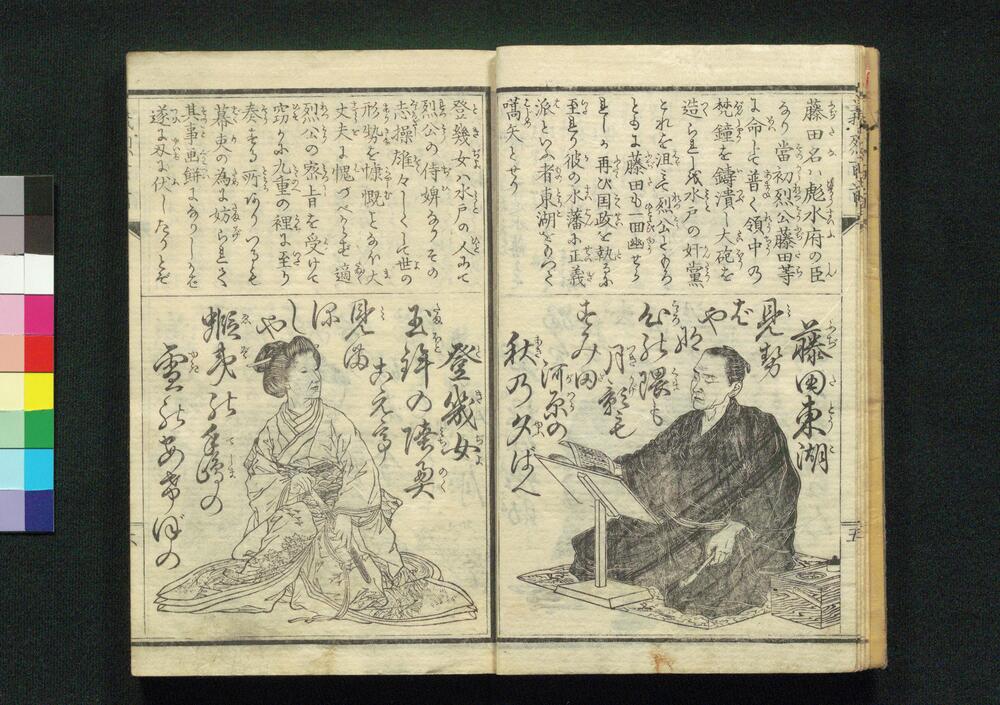 藤田名ハ彪水府の臣
なり當初烈公藤田等
に命して普く領中の
梵鐘を鋳潰し大砲を
造らしむ水戸の奸黨
これを沮ミ烈公とゝもに
とらはれ藤田も一旦幽せら
再び国政を執るに
至るより彼の水藩に正義
派といふ者東湖をもつて
嚆矢とせり
藤田東湖
見勢
ばや
な
心能隈も
月影も
すみ田
河原の
秋乃夕ばへ
登幾女ハ水戸の人にて
烈公の侍婢なりその
志操雄々しくして世の
形勢を慷慨しあハ大
丈夫に愧づべからず適
烈公の密旨を受けて
窃かに九重の裡に至り
奏する所ありつるも
幕吏の為に妨られて
其事画餅になりしかば
遂に刃に伏したりとぞ
登幾女
玉鉾の陸奥
こえて
見まほしや
蝦夷能千嶋の
雪能あけぼの